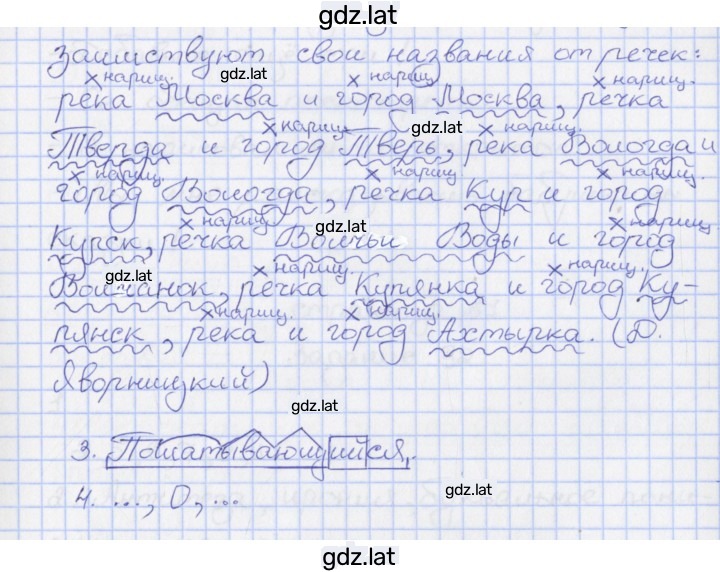 gdz.lat
заимствуют свои названия от речек:
gdz.lat
х нариц. х нариц.
река Москва и город Москва, речка
х нариц. gdz.lat х нариц.
Тверда и город Тверь, река Вологда и
х нариц. х нариц. х нариц.
город Вологда, речка Кур и город
х нариц. х нариц.
Курск, речка Волчьи Воды и город
gdz.lat х нариц. х нариц.
Волчанок, речка Купянка и город Ку-
х нариц. х нариц.
пянск, река и город Ахтырка. (Д.
Яворницкий)
gdz.lat
3. Пошатывающийся,
4. ..., О, ...
gdz.lat
gdz.lat